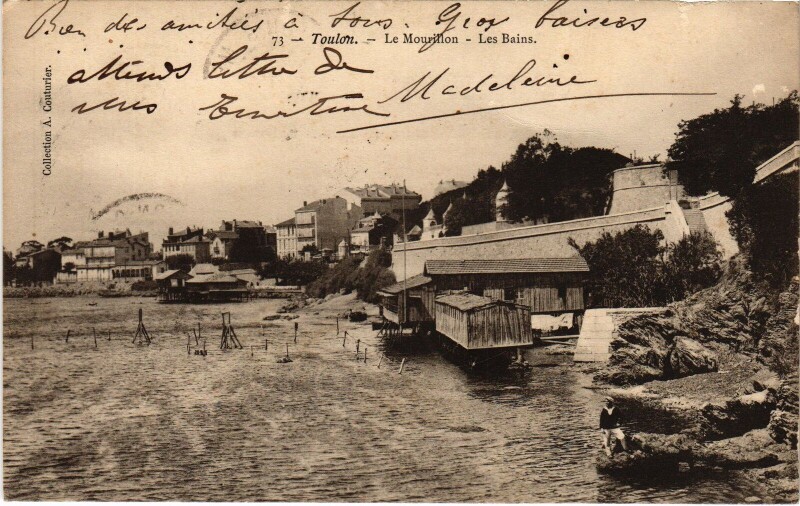 Bien des amitiés à tous. Gros baisers
73 - Toulon. - Le Mourillon - Les Bains.
attends lettre de Madeleine
Collection A. Couturier.